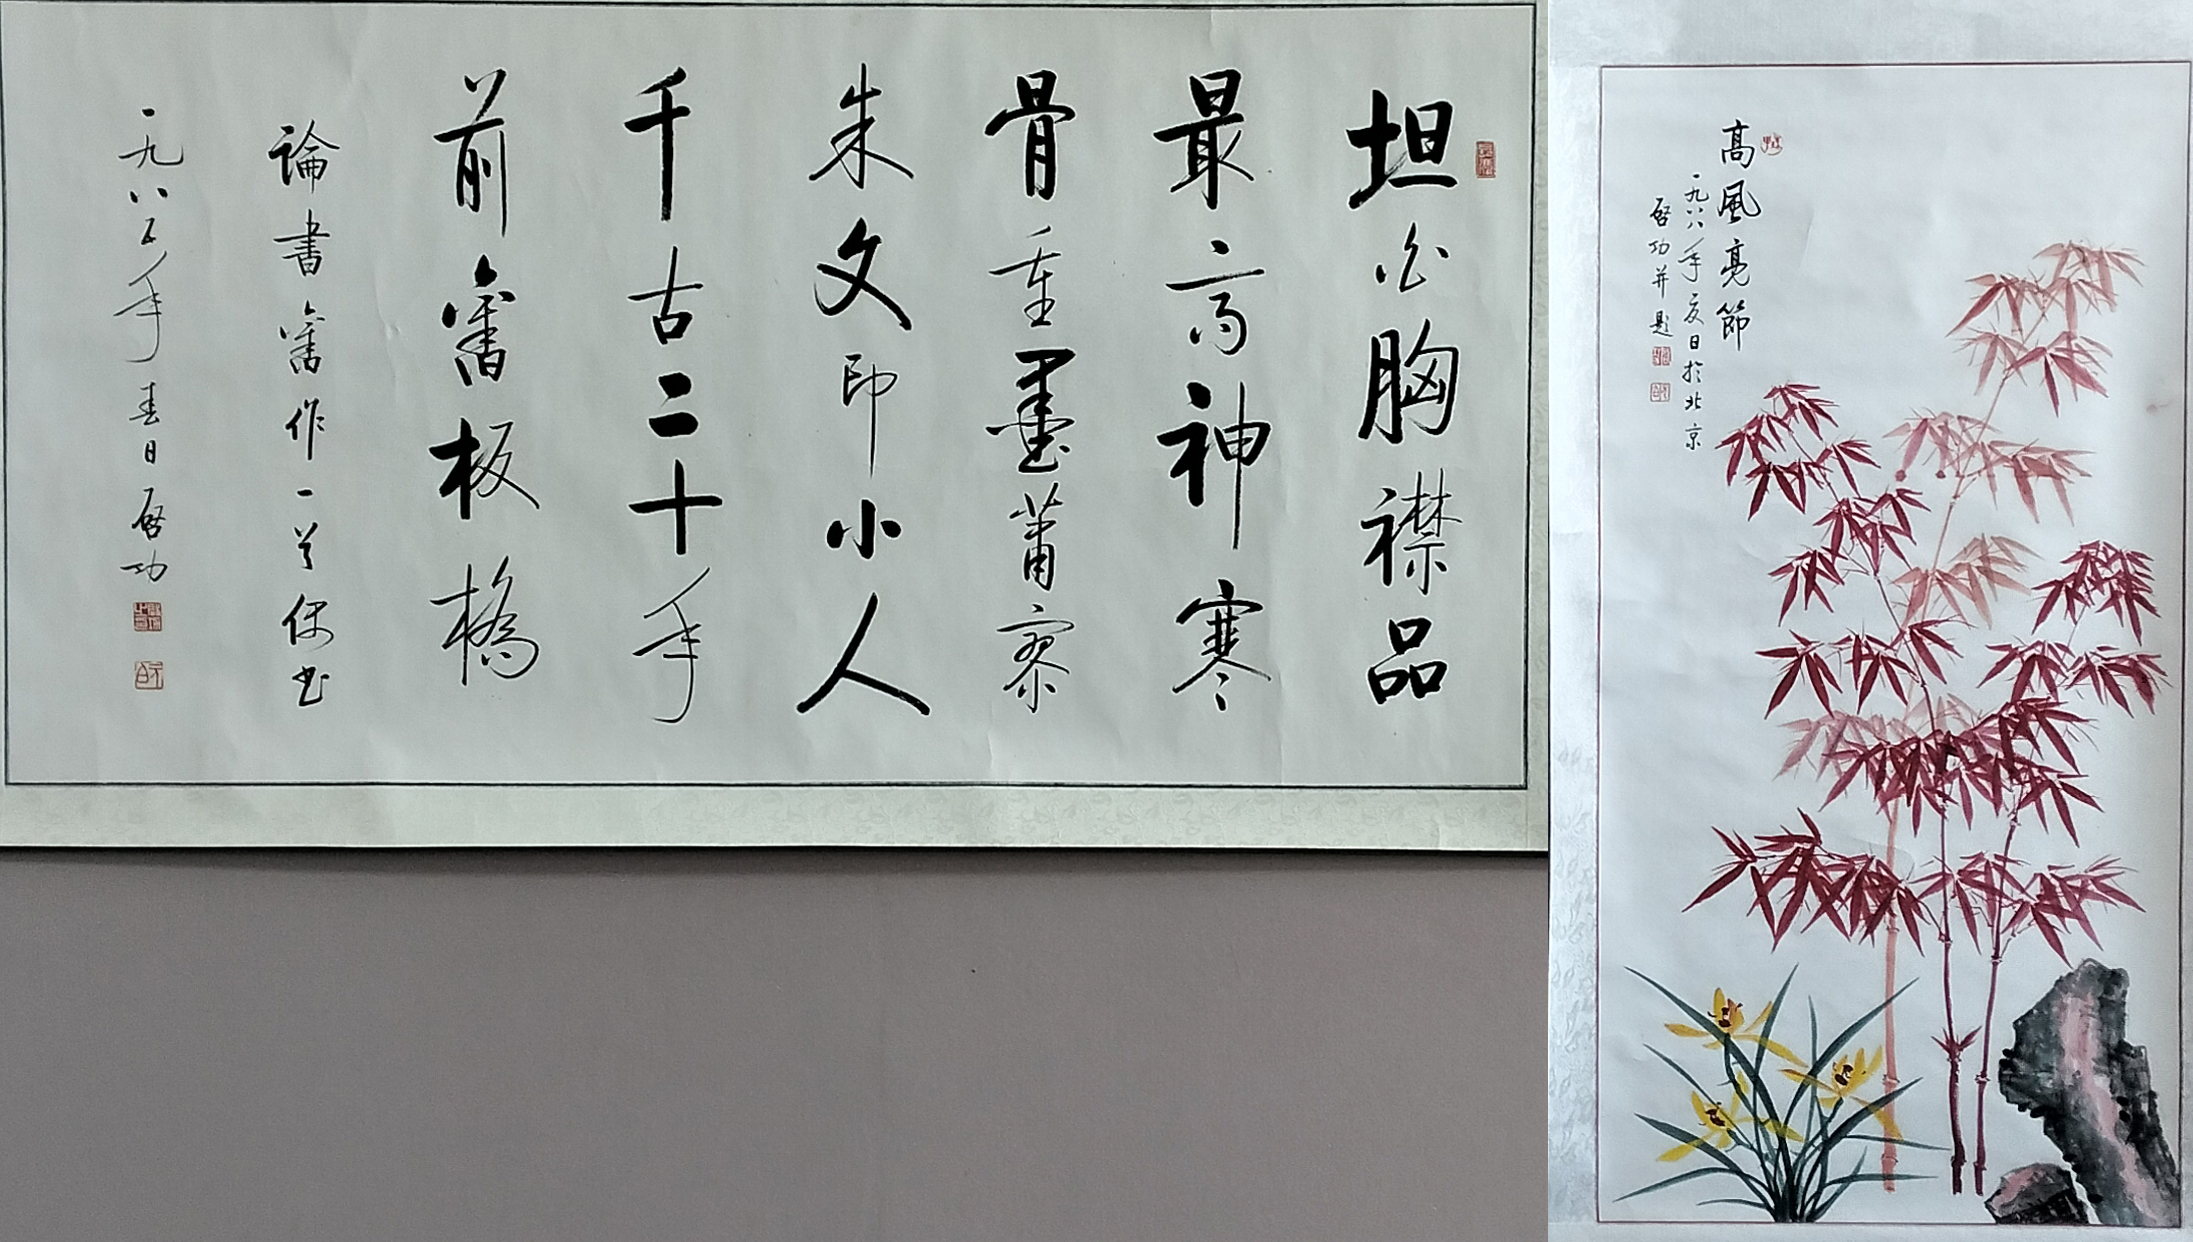 坦白胸襟品
最高神寒
骨重墨蕭寥
朱文印小人
千古二十年
前舊板橋
論書舊作一首偶书
一九八五年春日 啓功
髙風亮節
一九八八年夏日扵北京
啓功并題